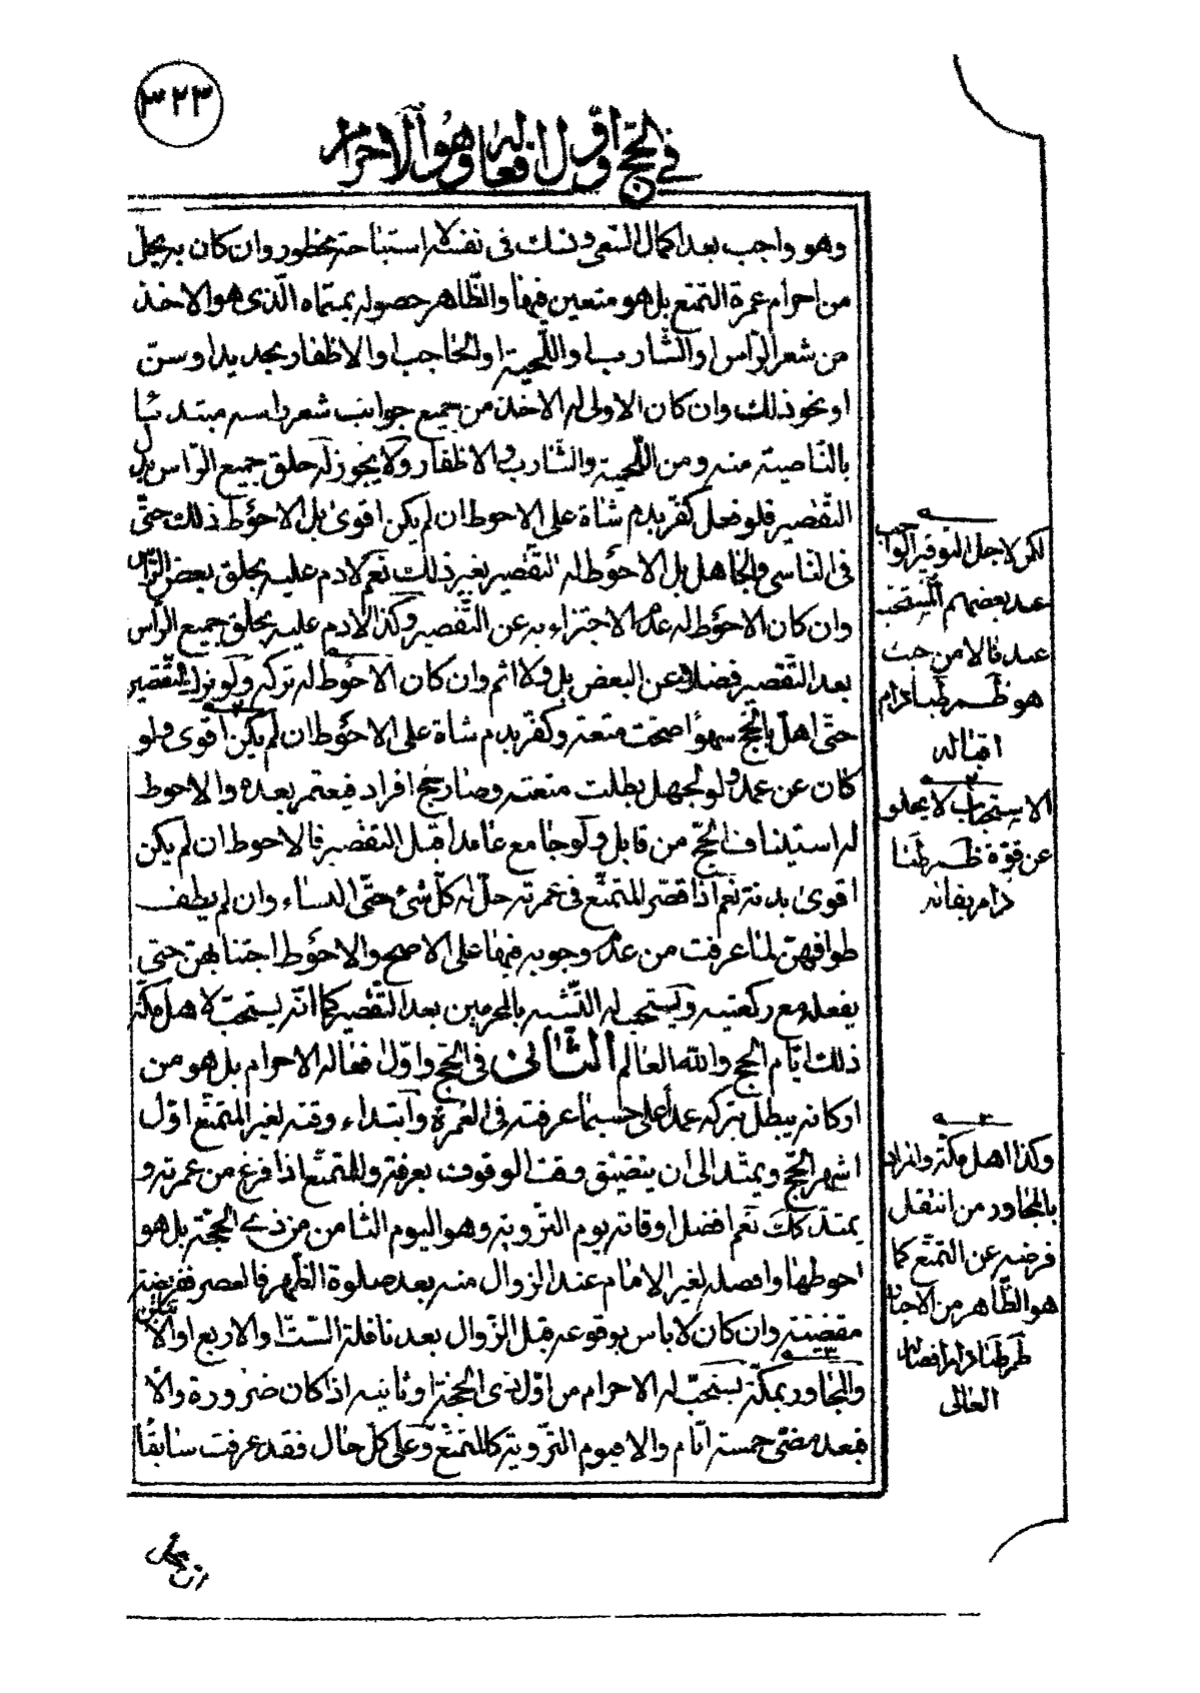 ٣٢٣
في الحج واول افعاله وهو الاحرام
وهو واجب بعد اكمال السعى ونسك فى نفسه لا استباحة محظور وان كان به يحل
من احرام عمرة التمتع بل هو متعين فيها والظاهر حصوله بمسماه الذى هو الاخذ
من شعر الراس او الشارب او اللحية او الحاجب او الاظفار بحديد او سن
او نحو ذلك وان كان الاولى له الاخذ من جميع جوانب شعر راسه مبتدئا
بالناصية منه ومن اللحية والشارب والاظفار ولا يجوز له حلق جميع الراس بدل
التقصير فلو فعل كفر بدم شاة على الاحوط ان لم يكن اقوى بل الاحوط ذلك حتى
فى الناسى والجاهل بل الاحوط له التقصير بغير ذلك نعم لا دم عليه بحلق بعض الراس
وان كان الاحوط له عدم الاجتزاء به عن التقصير وكذا لا دم عليه بحلق جميع الراس
بعد التقصير فضلا عن البعض بل ولا اثم وان كان الاحوط له تركه ولو ترك التقصير
حتى اهل بالحج سهوا صحت متعته وكفر بدم شاة على الاحوط ان لم يكن اقوى ولو
كان عن عمد ولو لجهل بطلت متعته وصار حج افراد فيعتمر بعده والاحوط
له استيناف الحج من قابل ولو جامع عامدا قبل التقصير فالاحوط ان لم يكن
اقوى بدنة نعم اذا قصر المتمتع فى عمرته حل له كل شئ حتى النساء وان لم يطف
طوافهن لما عرفت من عدم وجوبه فيها على الاصح والاحوط اجتنابهن حتى
يفعله مع ركعتيه ويستحب له التشبه بالمحرمين بعد التقصير كما انه يستحب لاهل مكة
ذلك ايام الحج والله العالم الثانى فى الحج واول افعاله الاحرام بل هو من
اركانه يبطل بتركه عمدا على حسبما عرفته فى العمرة وابتداء وقته لغير المتمتع اول
اشهر الحج ويمتد الى ان يتضيق وقت الوقوف بعرفة وللمتمتع اذا فرغ من عمرته و
يمتد كك نعم افضل اوقاته يوم التروية وهو اليوم الثامن من ذى الحجة بل هو
احوطها وافضله لغير الامام عند الزوال منه بعد صلوة الظهر فالعصر ففريضة
مقضية وان كان لا باس بوقوعه قبل الزوال بعد نافلة الست او الاربع او الاثنتين
والمجاور بمكة يستحب له الاحرام من اول ذى الحجة او ثانيه اذا كان ضرورة والا
فبعد مضى خمسة ايام والا فيوم التروية كالمتمتع وعلى كل حال فقد عرفت سابقا
لكن لاجل التوفير الواجب
عند بعضهم المستحب
عندنا لا من حيث
هو ظم طبا دام
اقباله
٢
الاستحباب لا يخلو
عن قوة ظم طبا
دام بقائه
٣
وكذا اهل مكة والمراد
بالمجاور من انتقل
فرضه عن التمتع كما
هو الظاهر من الاخبار
ظم طبا دام افضاله
العالى